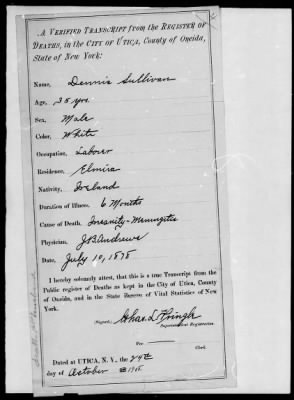 A VERIFIED TRANSCRIPT from the REGISTER OF
DEATHS, in the CITY OF UTICA, County of Oneida,
State of New York:
Name, Dennis Sullivan
Age, 38 yrs.
Sex, Male
Color, White
Occupation, Laborer
Residence, Elmira
Nativity, Ireland
Duration of Illness, 6 Months
Cause of Death, Insanity-Meningitis
Physician, J.B. Andrews
Date, July 10, 1878
I hereby solemnly attest, that this is a true Transcript from the
Public register of Deaths as kept in the City of Utica, County
of Oneida, and in the State Bureau of Vital Statistics of New
York.
(Signed,) Chas. L.
Superintendent Registration.
Per
Clerk.
Dated at UTICA, N. Y., the 24th
day of October